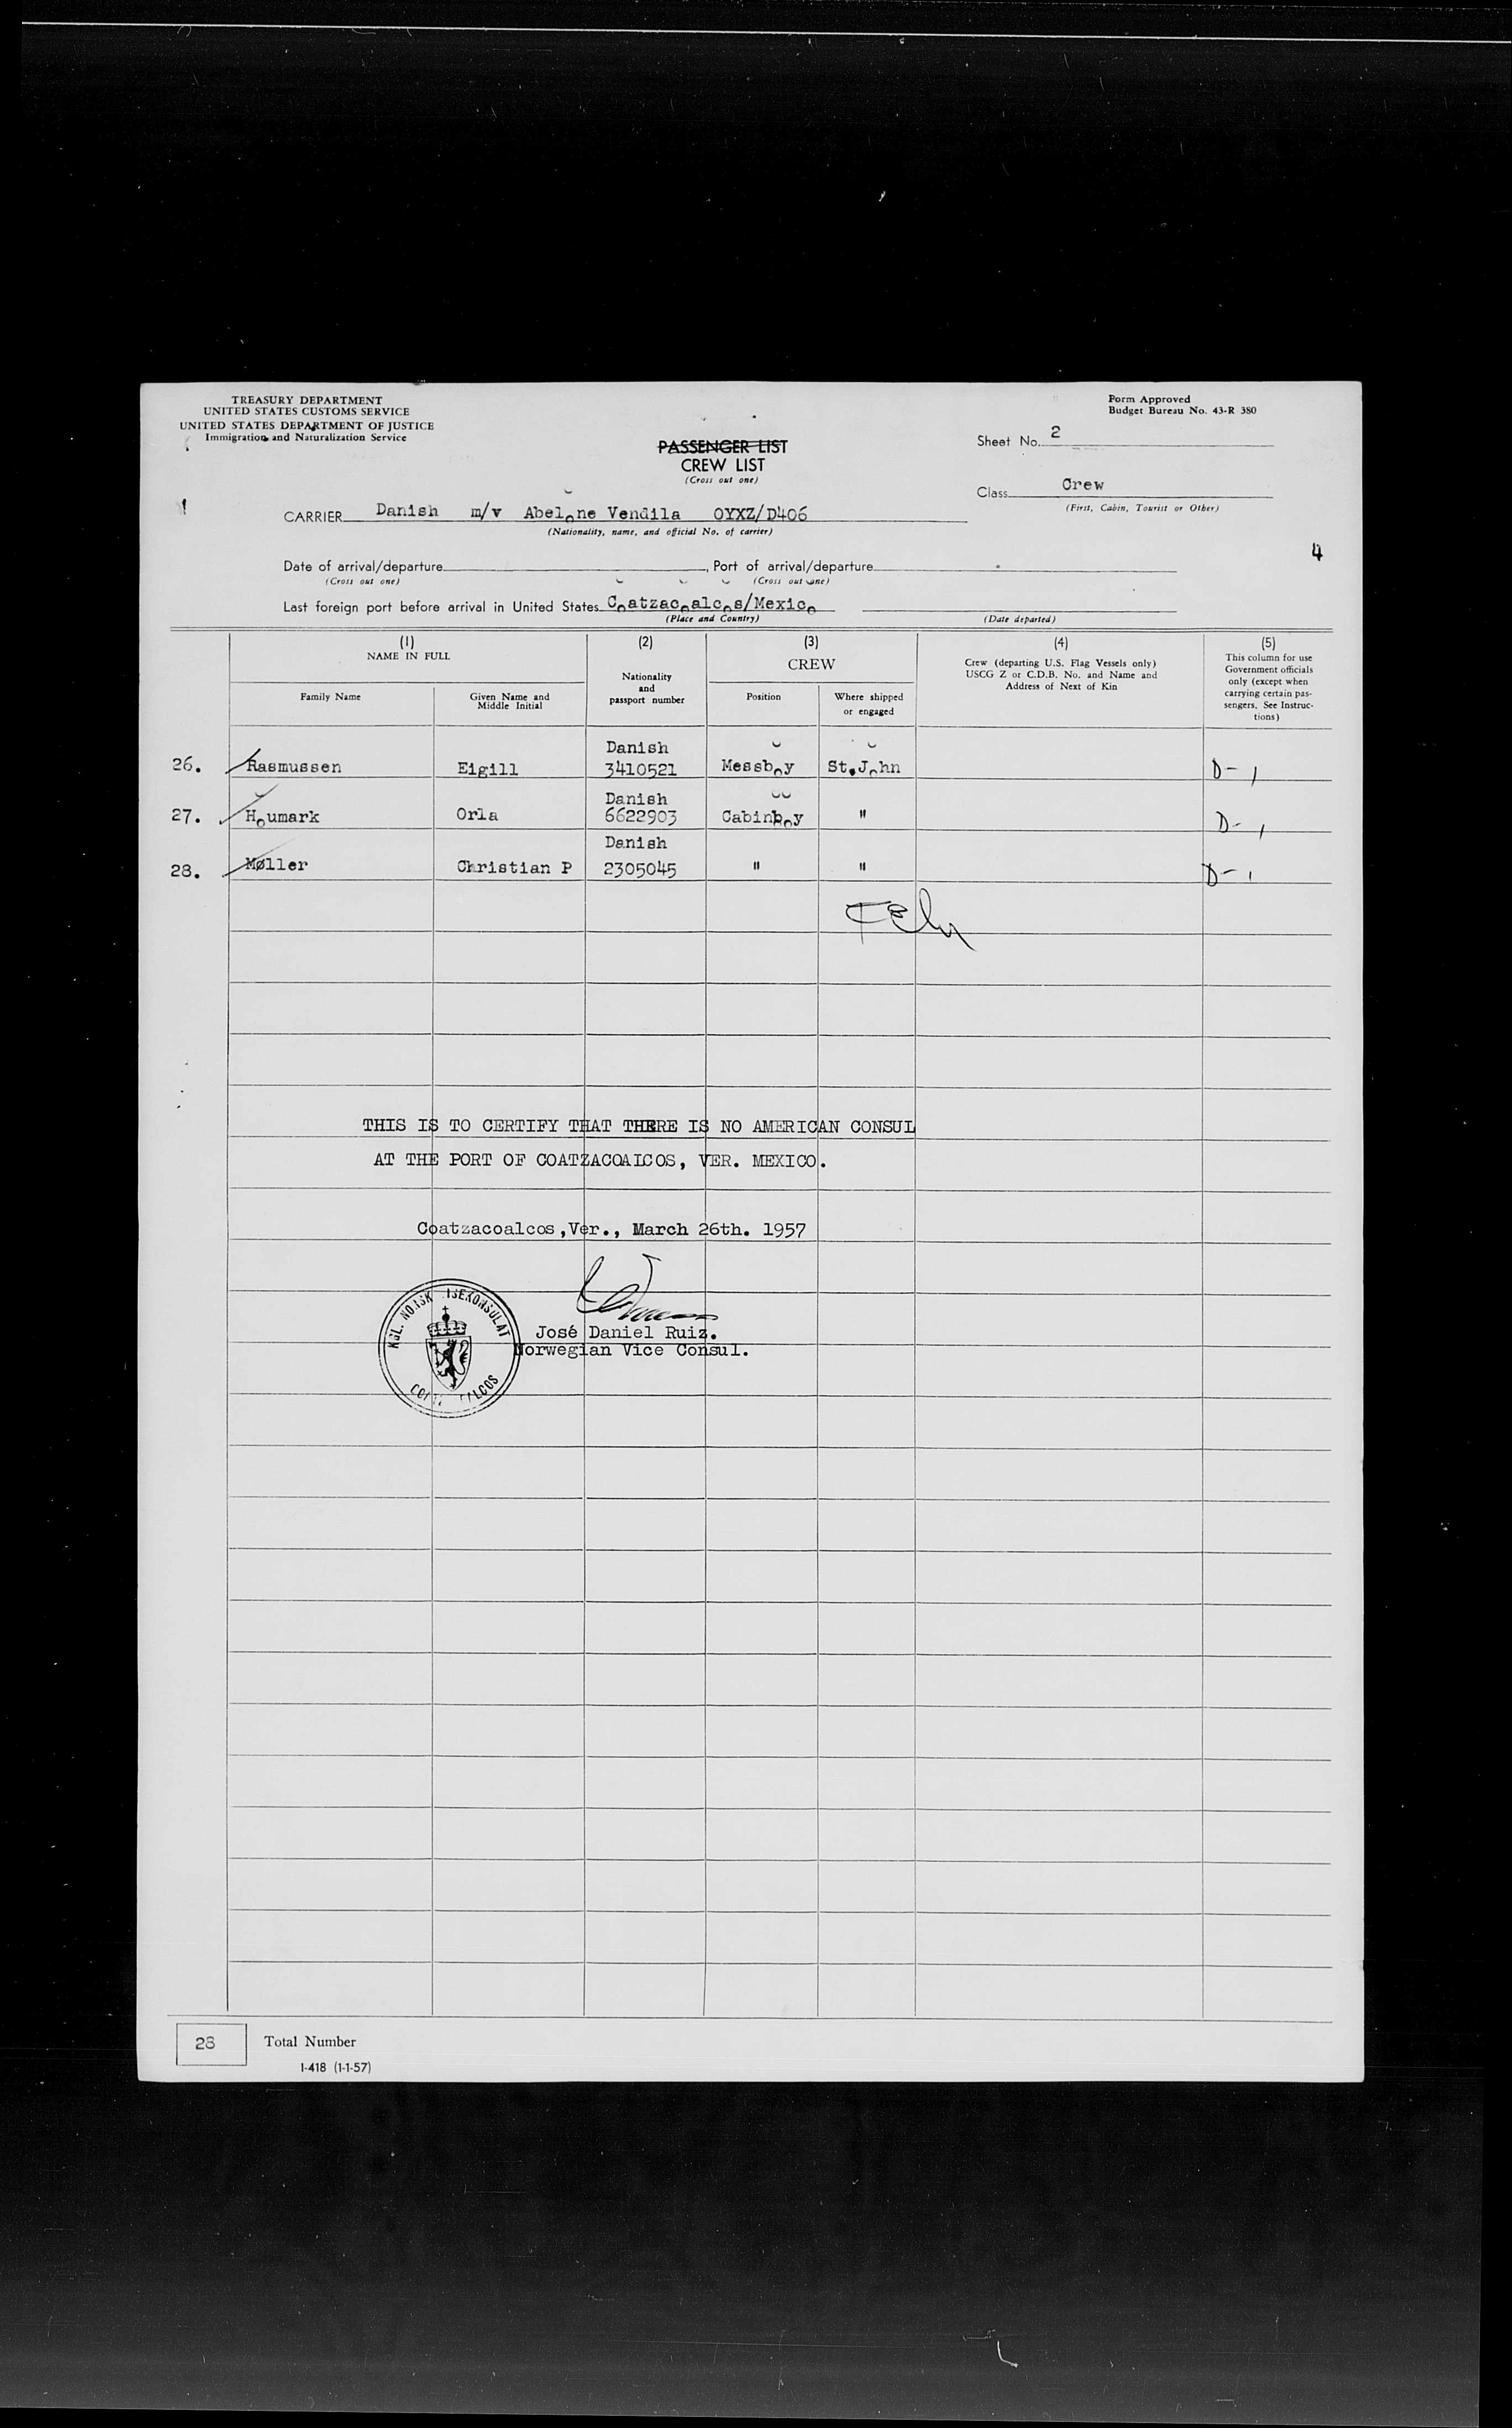 TREASURY DEPARTMENT
UNITED STATES CUSTOMS SERVICE
UNITED STATES DEPARTMENT OF JUSTICE
Immigration and Naturalization Service
Form Approved
Budget Bureau No. 43-R 380
PASSENGER LIST
CREW LIST
(Cross out one)
Sheet No. 2
Class Crew
(First, Cabin, Tourist or Other)
CARRIER Danish m/v Abelone Vendila OYXZ/D406
(Nationality, name, and official No. of carrier)
4
Date of arrival/departure , Port of arrival/departure
(Cross out one) (Cross out one)
Last foreign port before arrival in United States Coatzacoalcos/Mexico
(Place and Country) (Date departed)
(1) (2) (3) (4) (5)
NAME IN FULL
Family Name
Given Name and
Middle Initial
Nationality
and
passport number
CREW
Position
Where shipped
or engaged
Crew (departing U.S. Flag Vessels only)
USCG Z or C.D.B. No. and Name and
Address of Next of Kin
This column for use
Government officials
only (except when
carrying certain pas-
sengers. See Instruc-
tions)
Danish
26. Rasmussen Eigill 3410521 Messboy St.John D-1
Danish
27. Houmark Orla 6622903 Cabinboy " D-1
Danish
28. Møller Christian P 2305045 " " D-1
THIS IS TO CERTIFY THAT THERE IS NO AMERICAN CONSUL
AT THE PORT OF COATZACOALCOS, VER. MEXICO.
Coatzacoalcos,Ver., March 26th. 1957
KGL. NORSK ISEKONSULAT
José Daniel Ruiz.
Norwegian Vice Consul.
28 Total Number
I-418 (1-1-57)